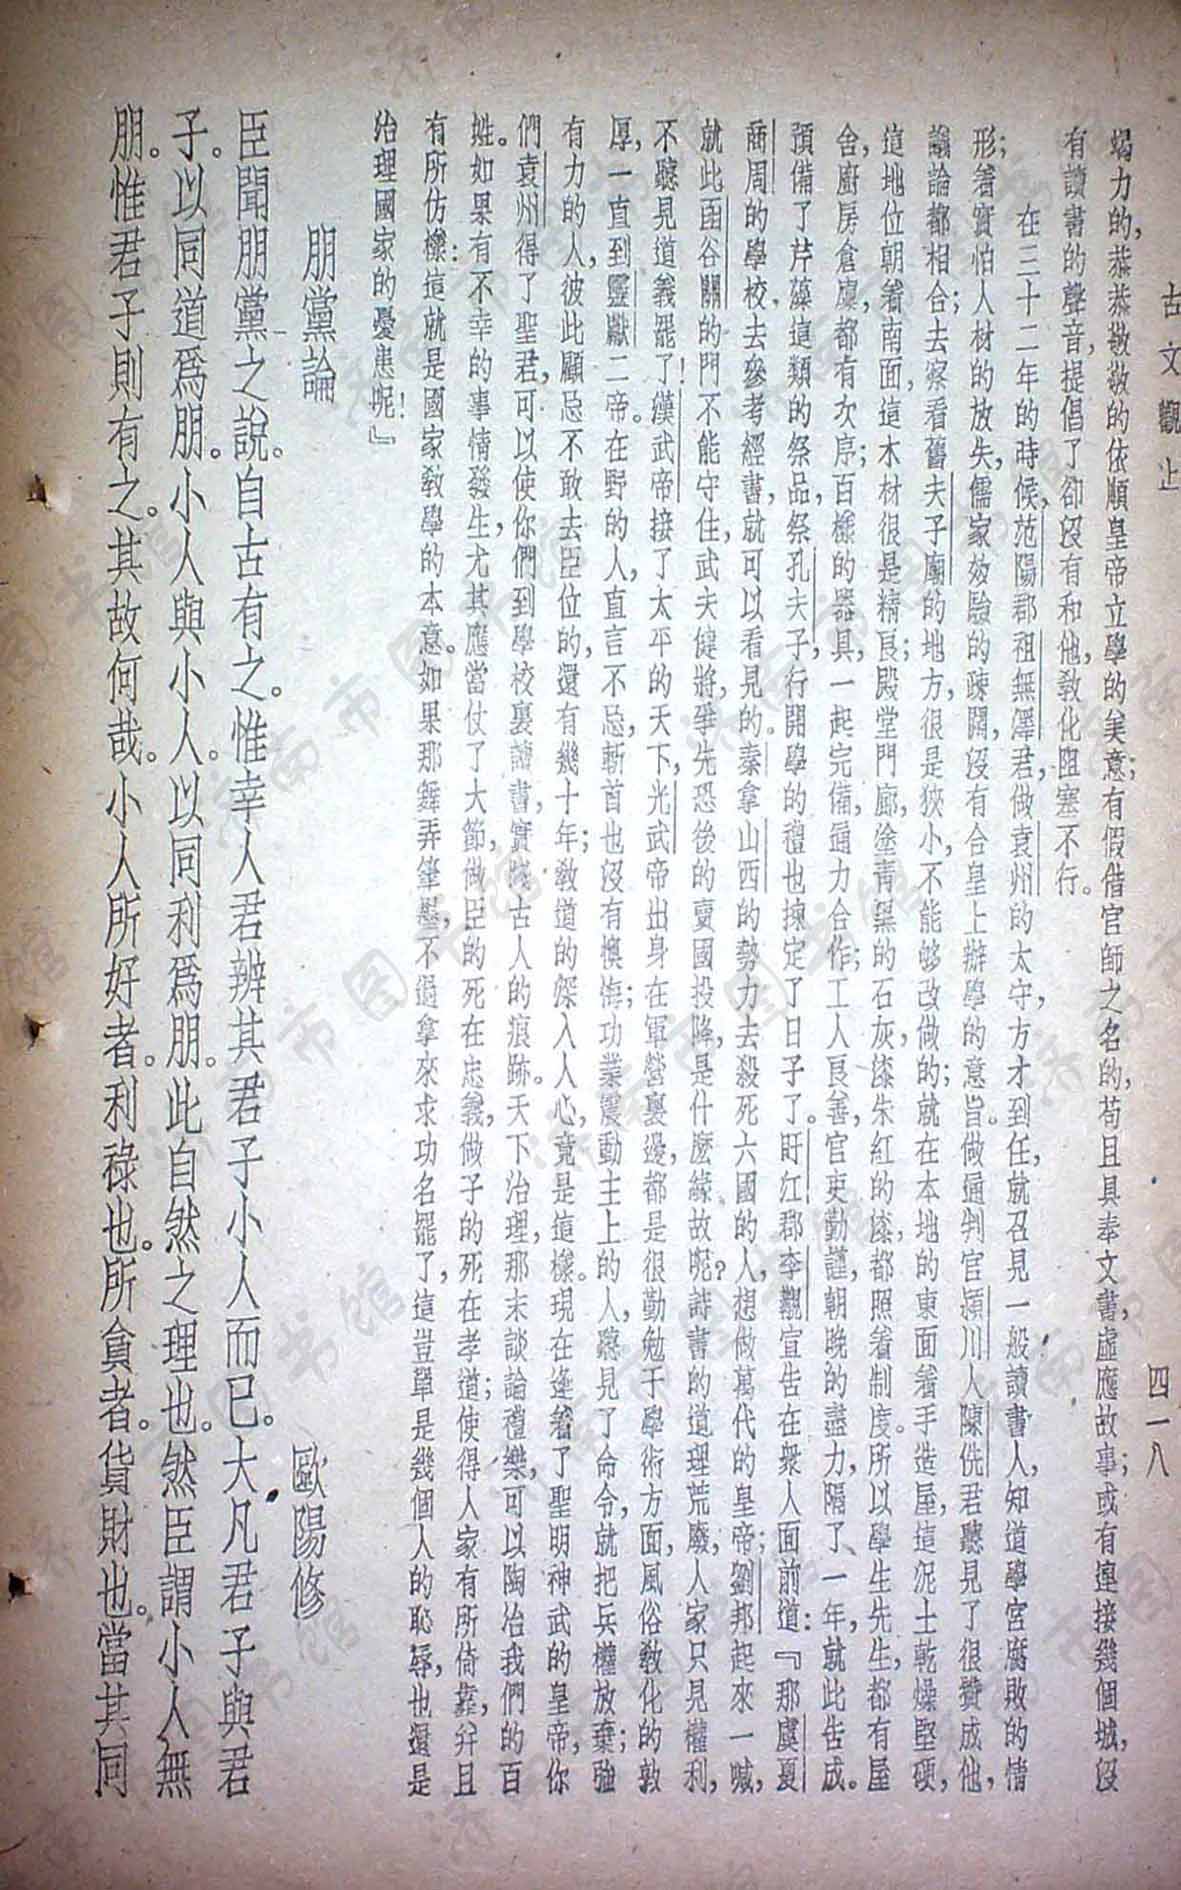 古文觀止 四一八
竭力的，恭恭敬敬的依順皇帝立學的美意；有假借官師之名的，苟且具奉文書，虛應故事；或有連接幾個城，沒
有讀書的聲音，提倡了卻沒有和他，教化阻塞不行。
在三十二年的時候，范陽郡祖無澤君，做袁州的太守，方才到任，就召見一般讀書人，知道學宮腐敗的情
形；着實怕人材的放失，儒家效驗的疎闊，沒有合皇上辦學的意旨。做通判官潁川人陳侁君聽見了很贊成他，
議論都相合；去察看舊夫子廟的地方，很是狹小，不能够改做的；就在本地的東面着手造屋，這泥土乾燥堅硬，
這地位朝着南面，這木材很是精良；殿堂門廊，塗青黑的石灰，漆朱紅的漆，都照着制度。所以學生先生，都有屋
舍，廚房倉廩，都有次序；百樣的器具，一起完備，通力合作；工人良善，官吏勤謹，朝晚的盡力，隔了一年，就此告成。
預備了芹藻這類的祭品，祭孔夫子，行開學的禮也揀定了日子了。盱江郡李覯宣告在衆人面前道：『那虞夏
商周的學校，去參考經書，就可以看見的。秦拿山西的勢力，去殺死六國的人，想做萬代的皇帝；劉邦起來一喊，
就此函谷關的門不能守住，武夫健將，爭先恐後的賣國投降，是什麼緣故呢？詩書的道理荒廢，人家只見權利，
不聽見道義罷了！漢武帝接了太平的天下，光武帝出身在軍營裏邊，都是很勤勉于學術方面，風俗教化的敦
厚，一直到靈獻二帝。在野的人，直言不忌，斬首也沒有懊悔；功業震動主上的人，聽見了命令，就把兵權放棄；強
有力的人，彼此顧忌不敢去臣位的，還有幾十年；教道的深入人心，竟是這樣。現在逢着了聖明神武的皇帝，你
們袁州得了聖君，可以使你們到學校裏讀書，實踐古人的痕跡。天下治理，那末談論禮樂，可以陶冶我們的百
姓。如果有不幸的事情發生，尤其應當仗了大節，做臣的死在忠義，做子的死在孝道；使得人家有所倚靠，幷且
有所仿樣：這就是國家教學的本意。如果那舞弄筆墨，不過拿來求功名罷了，這豈單是幾個人的恥辱，也還是
治理國家的憂患呢！』
朋黨論 歐陽修
臣聞朋黨之說。自古有之。惟幸人君辨其君子小人而已。大凡君子與君
子。以同道爲朋。小人與小人。以同利爲朋。此自然之理也。然臣謂小人無
朋。惟君子則有之。其故何哉。小人所好者。利祿也。所貪者。貨財也。當其同